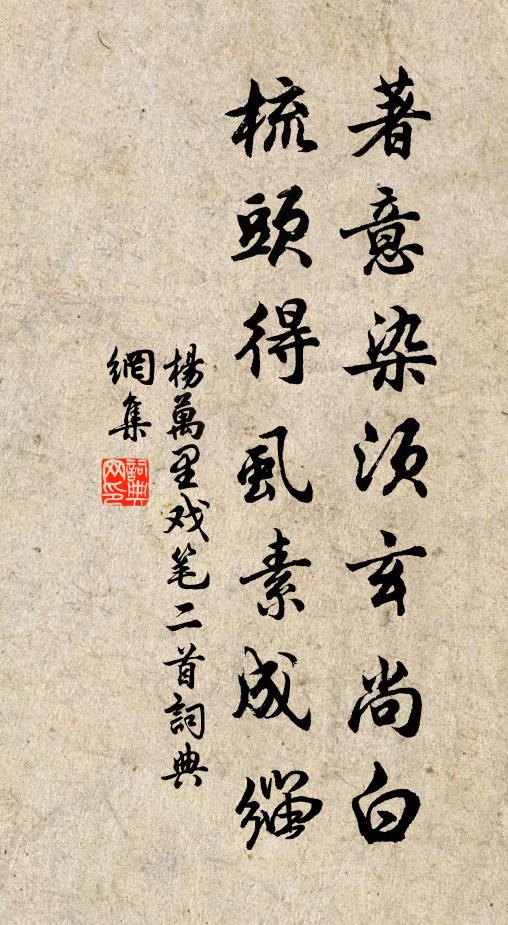 著意染須玄尚白
梳頭得虱素成緇
楊萬里戏笔二首詞典
網集
詞典
网印